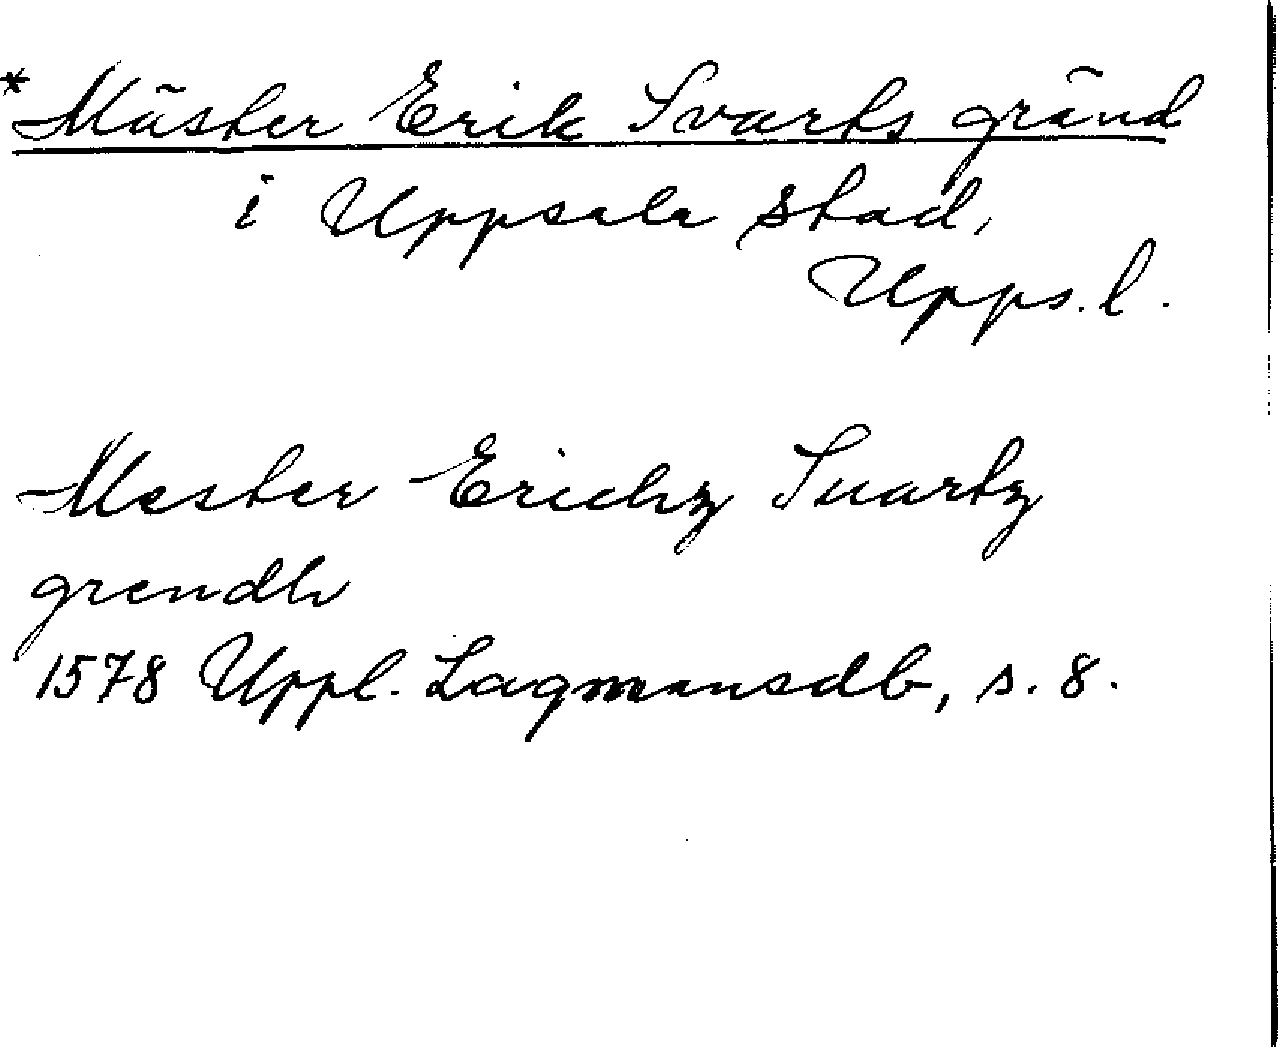 * Mäster Erik Svarts gränd
i Uppsala stad,
Upps. l.
Mester Erichz Suartz
grendh
1578 Uppl. Lagmansdb, s. 8.